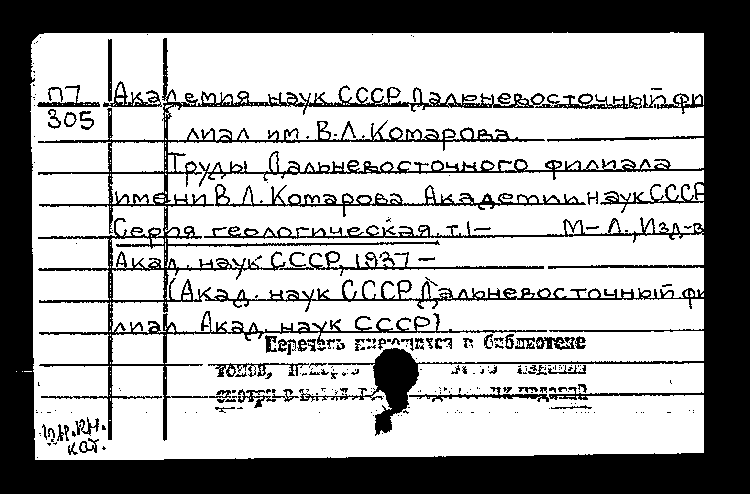 П7 Академия наук СССР Дальневосточный фи
305 лиал им. В.Л.Комарова.
Труды Дальневосточного филиала
имени В.Л.Комарова Академии наук СССР
Серия геологическая, т.1— М-Л., Изд-в
Акад. наук СССР, 1937 —
(Акад. наук СССР Дальневосточный фи
лиал Акад. наук СССР).
Перечень имеющихся в библиотеке
томов, издания
смотри в изданий
кат.